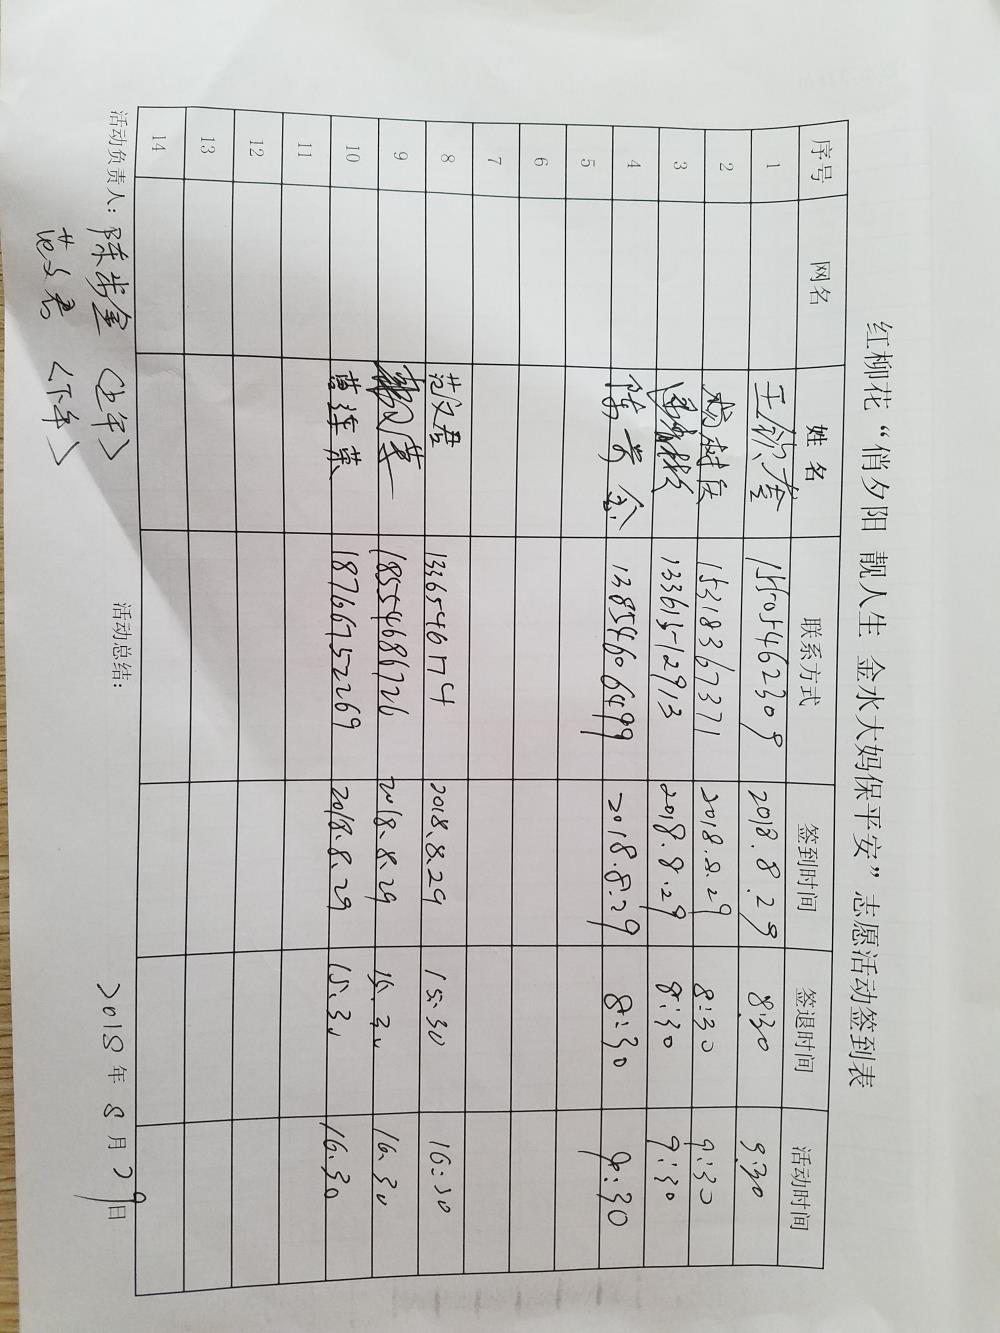 红柳花“俏夕阳 靓人生 金水大妈保平安”志愿活动签到表
序号 网名 姓名 联系方式 签到时间 签退时间 活动时间
1 15505462309 2018.8.29 8:30 9:30
2 杨树兵 15318367371 2018.8.29 8:30 9:30
3 13361512913 2018.8.29 8:30 9:30
4 陈步金 13854606499 2018.8.29 8:30 9:30
5
6
7
8 范文君 13365461774 2018.8.29 15:30 16:30
9 18554686726 2018.8.29 15.30 16.30
10 曹连英 18766752269 2018.8.29 15.30 16.30
11
12
13
14
活动负责人: 陈步金 〈上午〉 活动总结: 2018年8月29日
范文君 〈下午〉